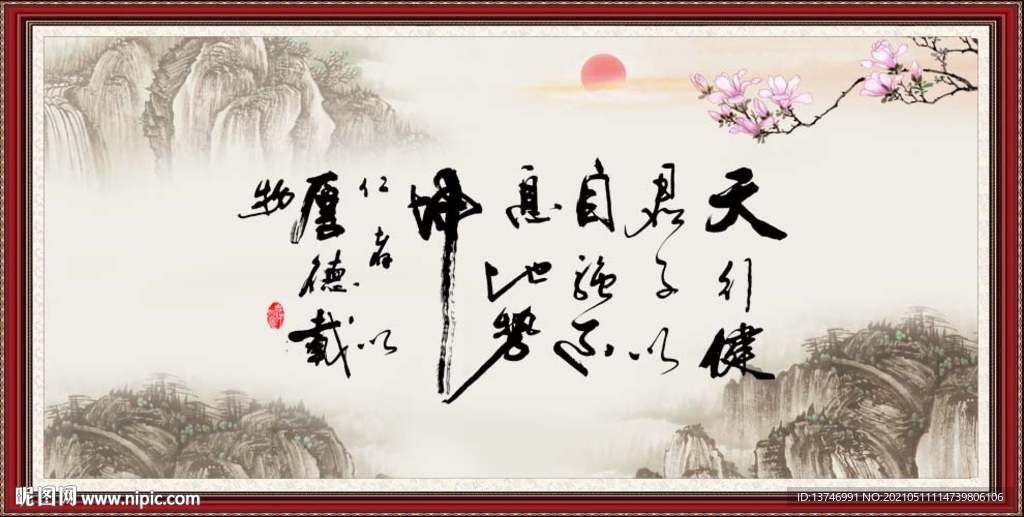 天行健
君子以
自強不
息地势
坤
仁者以
厚德載
物
昵图网 www.nipic.com
ID:13746991 NO:20210511114739806106